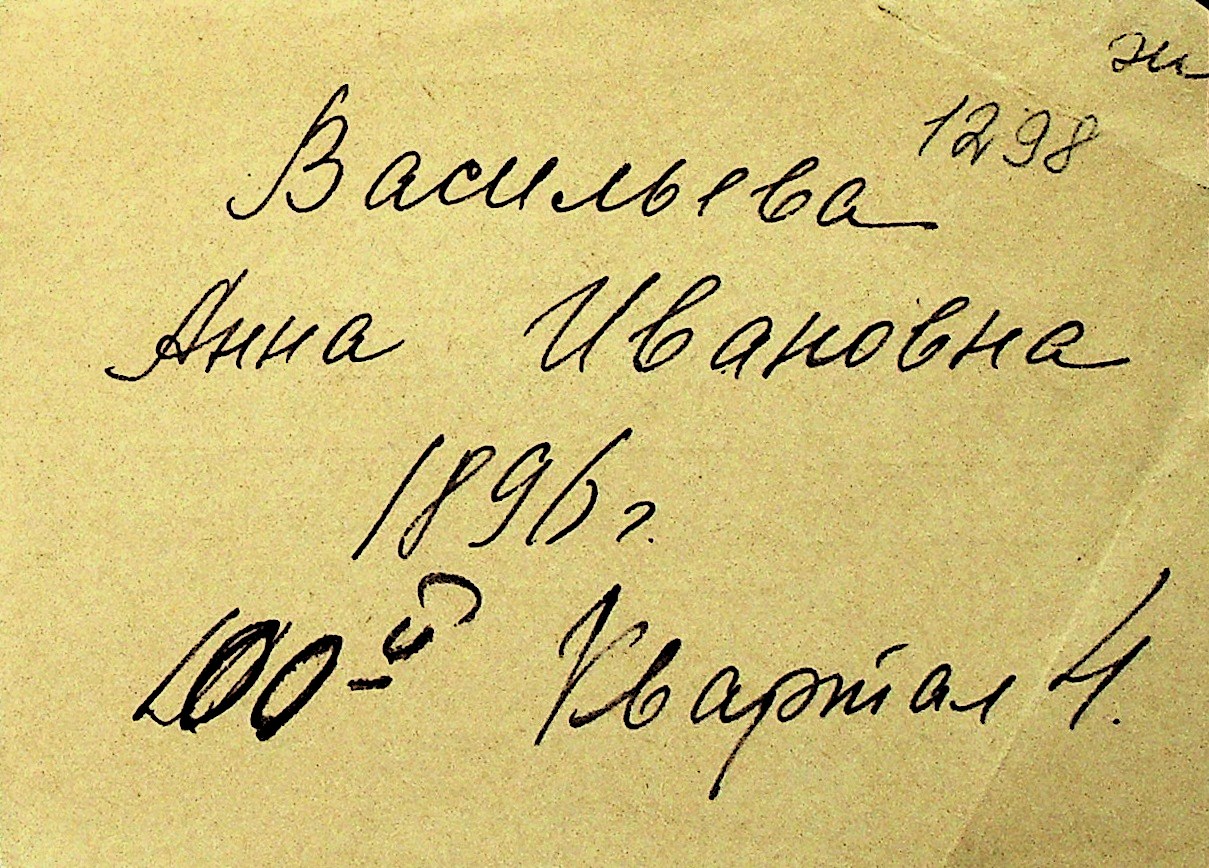 эи
1298
Васильева
Анна Ивановна
1896 г.
100-й Квартал 4.